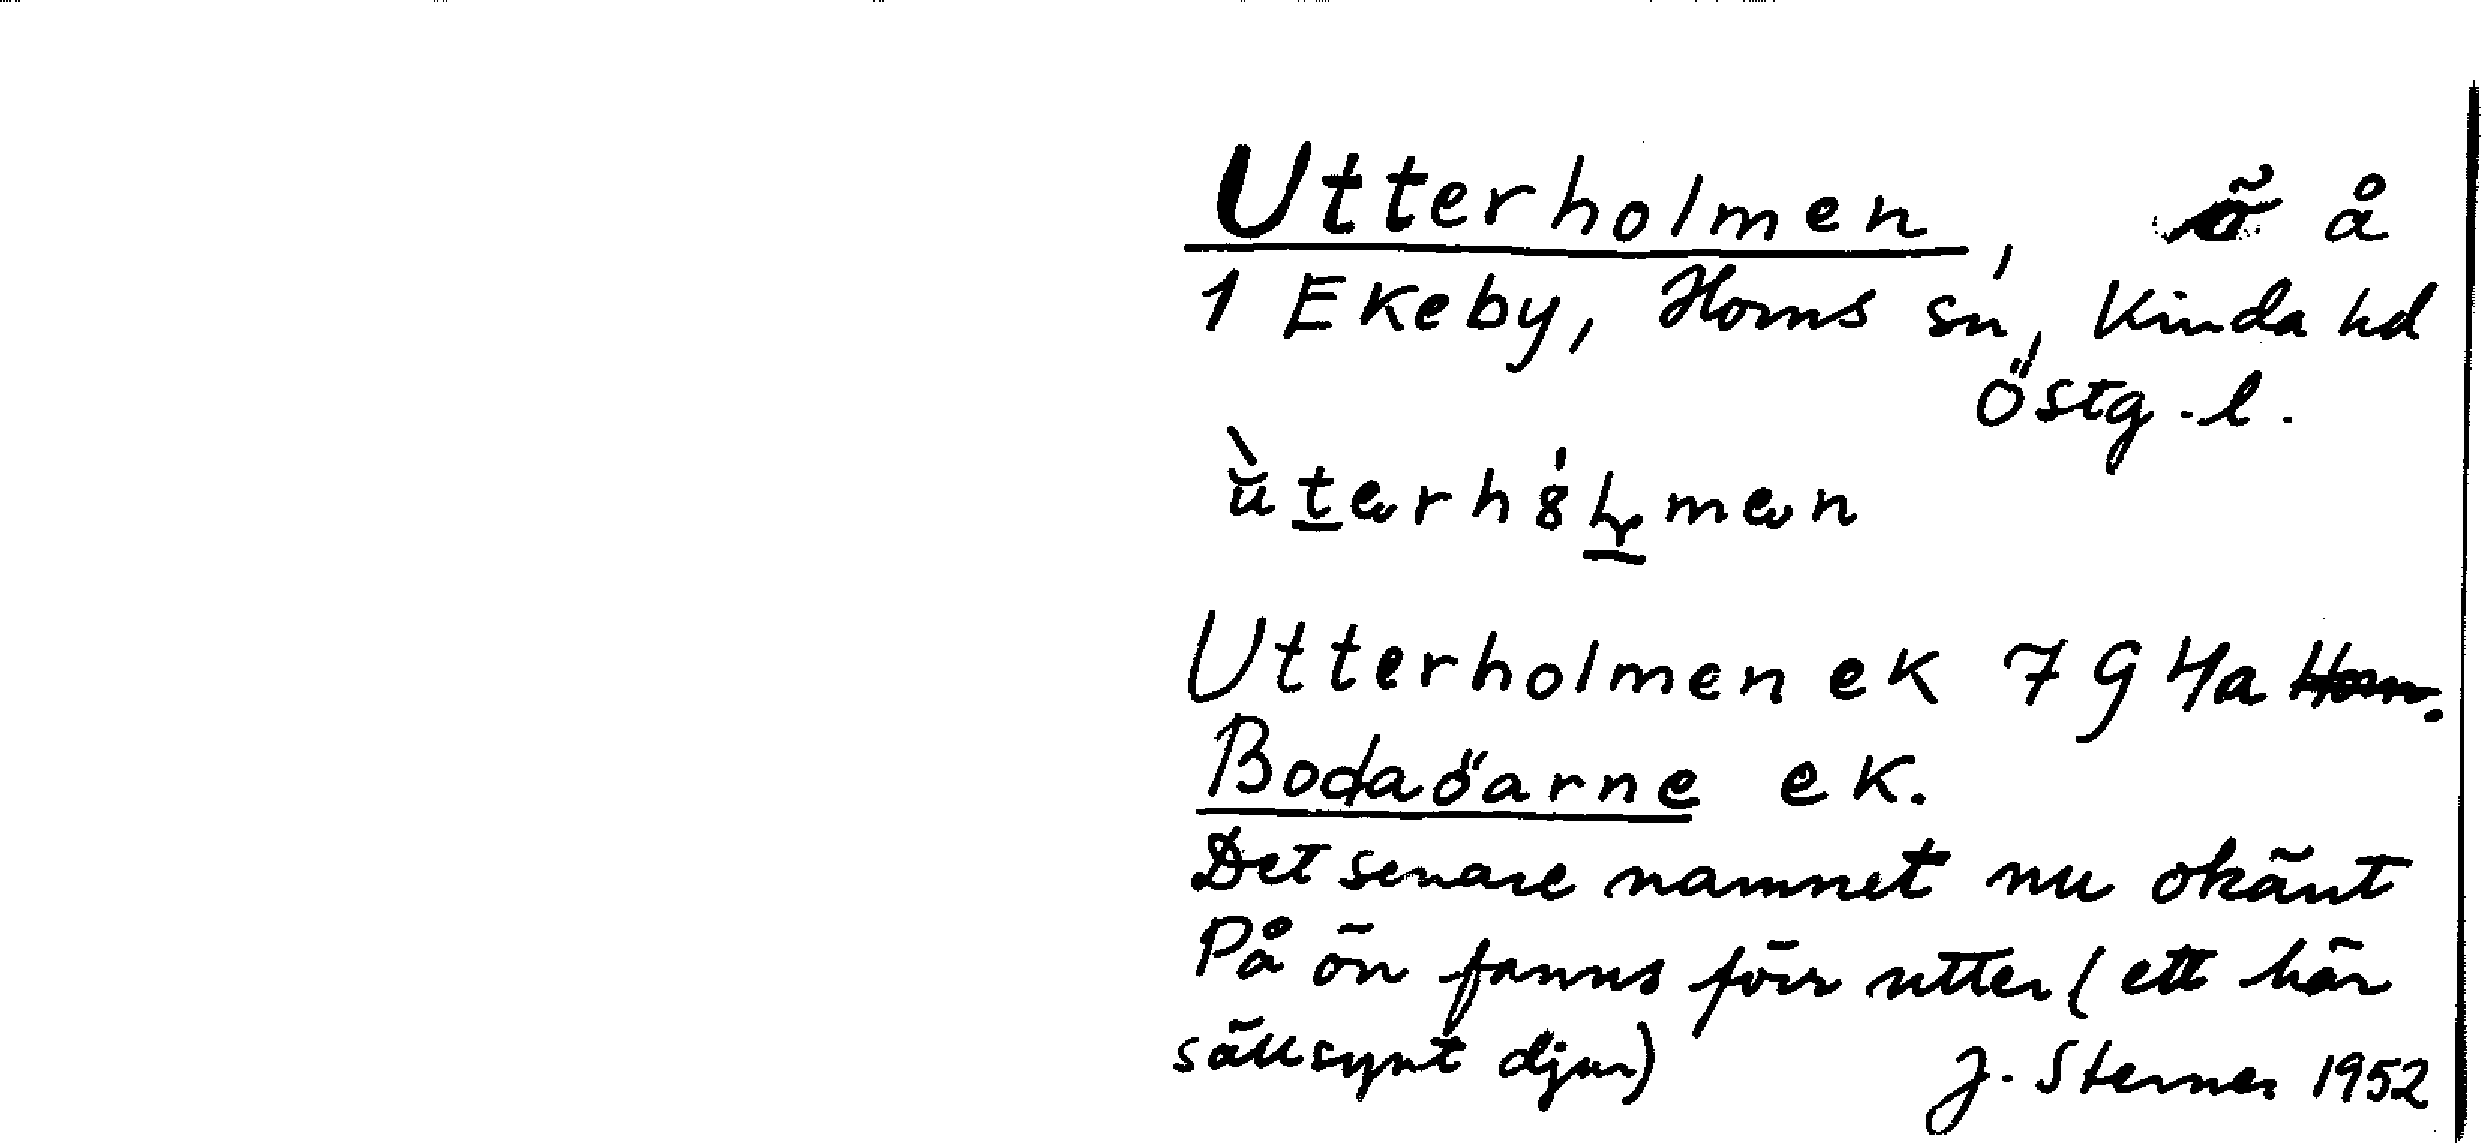 Utterholmen, å
1 Ekeby, Horns sn, Kinda hd
Östg.l.
Utterholmen ek 7 G 4a Horn.
Bodaöarne ek.
Det senare namnet nu okänt
På ön fanns förr utter (ett här
sällsynt djur) J. Sterner 1952